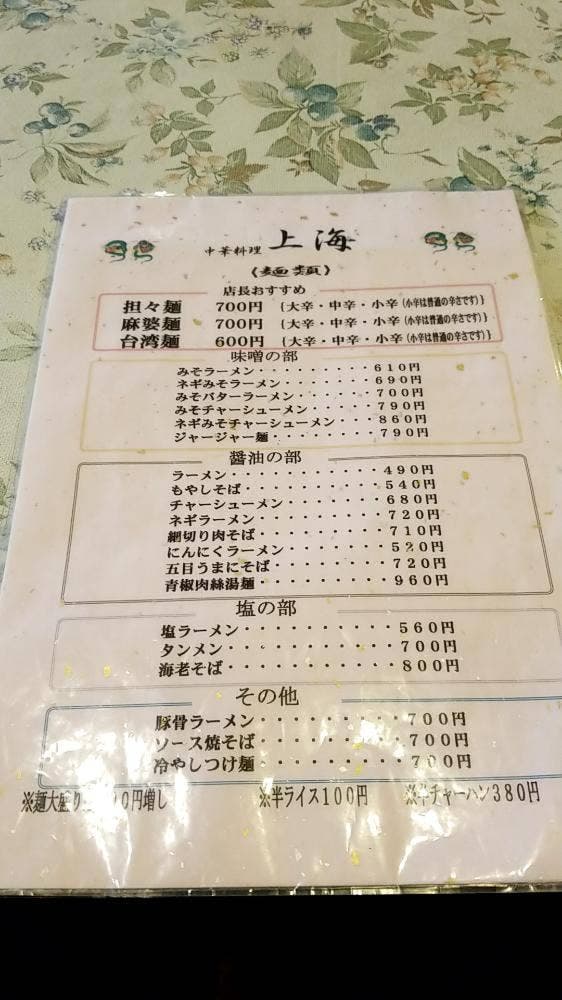 中華料理 上海
《麺類》
店長おすすめ
担々麺 700円 {大辛・中辛・小辛(小辛は普通の辛さです)}
麻婆麺 700円 {大辛・中辛・小辛(小辛は普通の辛さです)}
台湾麺 600円 {大辛・中辛・小辛(小辛は普通の辛さです)}
味噌の部
みそラーメン・・・・・・・・・610円
ネギみそラーメン・・・・・・・690円
みそバターラーメン・・・・・・700円
みそチャーシューメン・・・・・790円
ネギみそチャーシューメン・・・860円
ジャージャー麺・・・・・・・・790円
醤油の部
ラーメン・・・・・・・・・・・490円
もやしそば・・・・・・・・・・540円
チャーシューメン・・・・・・・680円
ネギラーメン・・・・・・・・・720円
細切り肉そば・・・・・・・・・710円
にんにくラーメン・・・・・・・520円
五目うまにそば・・・・・・・・720円
青椒肉絲湯麺・・・・・・・・・960円
塩の部
塩ラーメン・・・・・・・・・・560円
タンメン・・・・・・・・・・・700円
海老そば・・・・・・・・・・・800円
その他
豚骨ラーメン・・・・・・・・・700円
ソース焼そば・・・・・・・・・700円
冷やしつけ麺・・・・・・・・・700円
※麺大盛り 円増し ※半ライス100円 ※半チャーハン380円